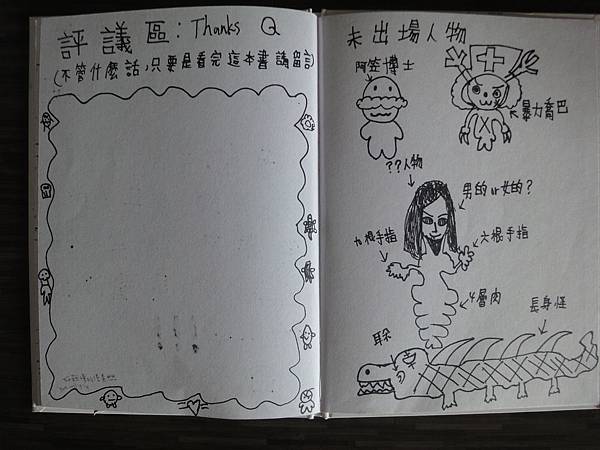 評議區:Thanks Q
(不管什麼話,只要是看完這本書請留言)
未出場人物
阿笠博士
暴力喬巴
??人物
男的or女的?
六根手指
4層肉
長身怪